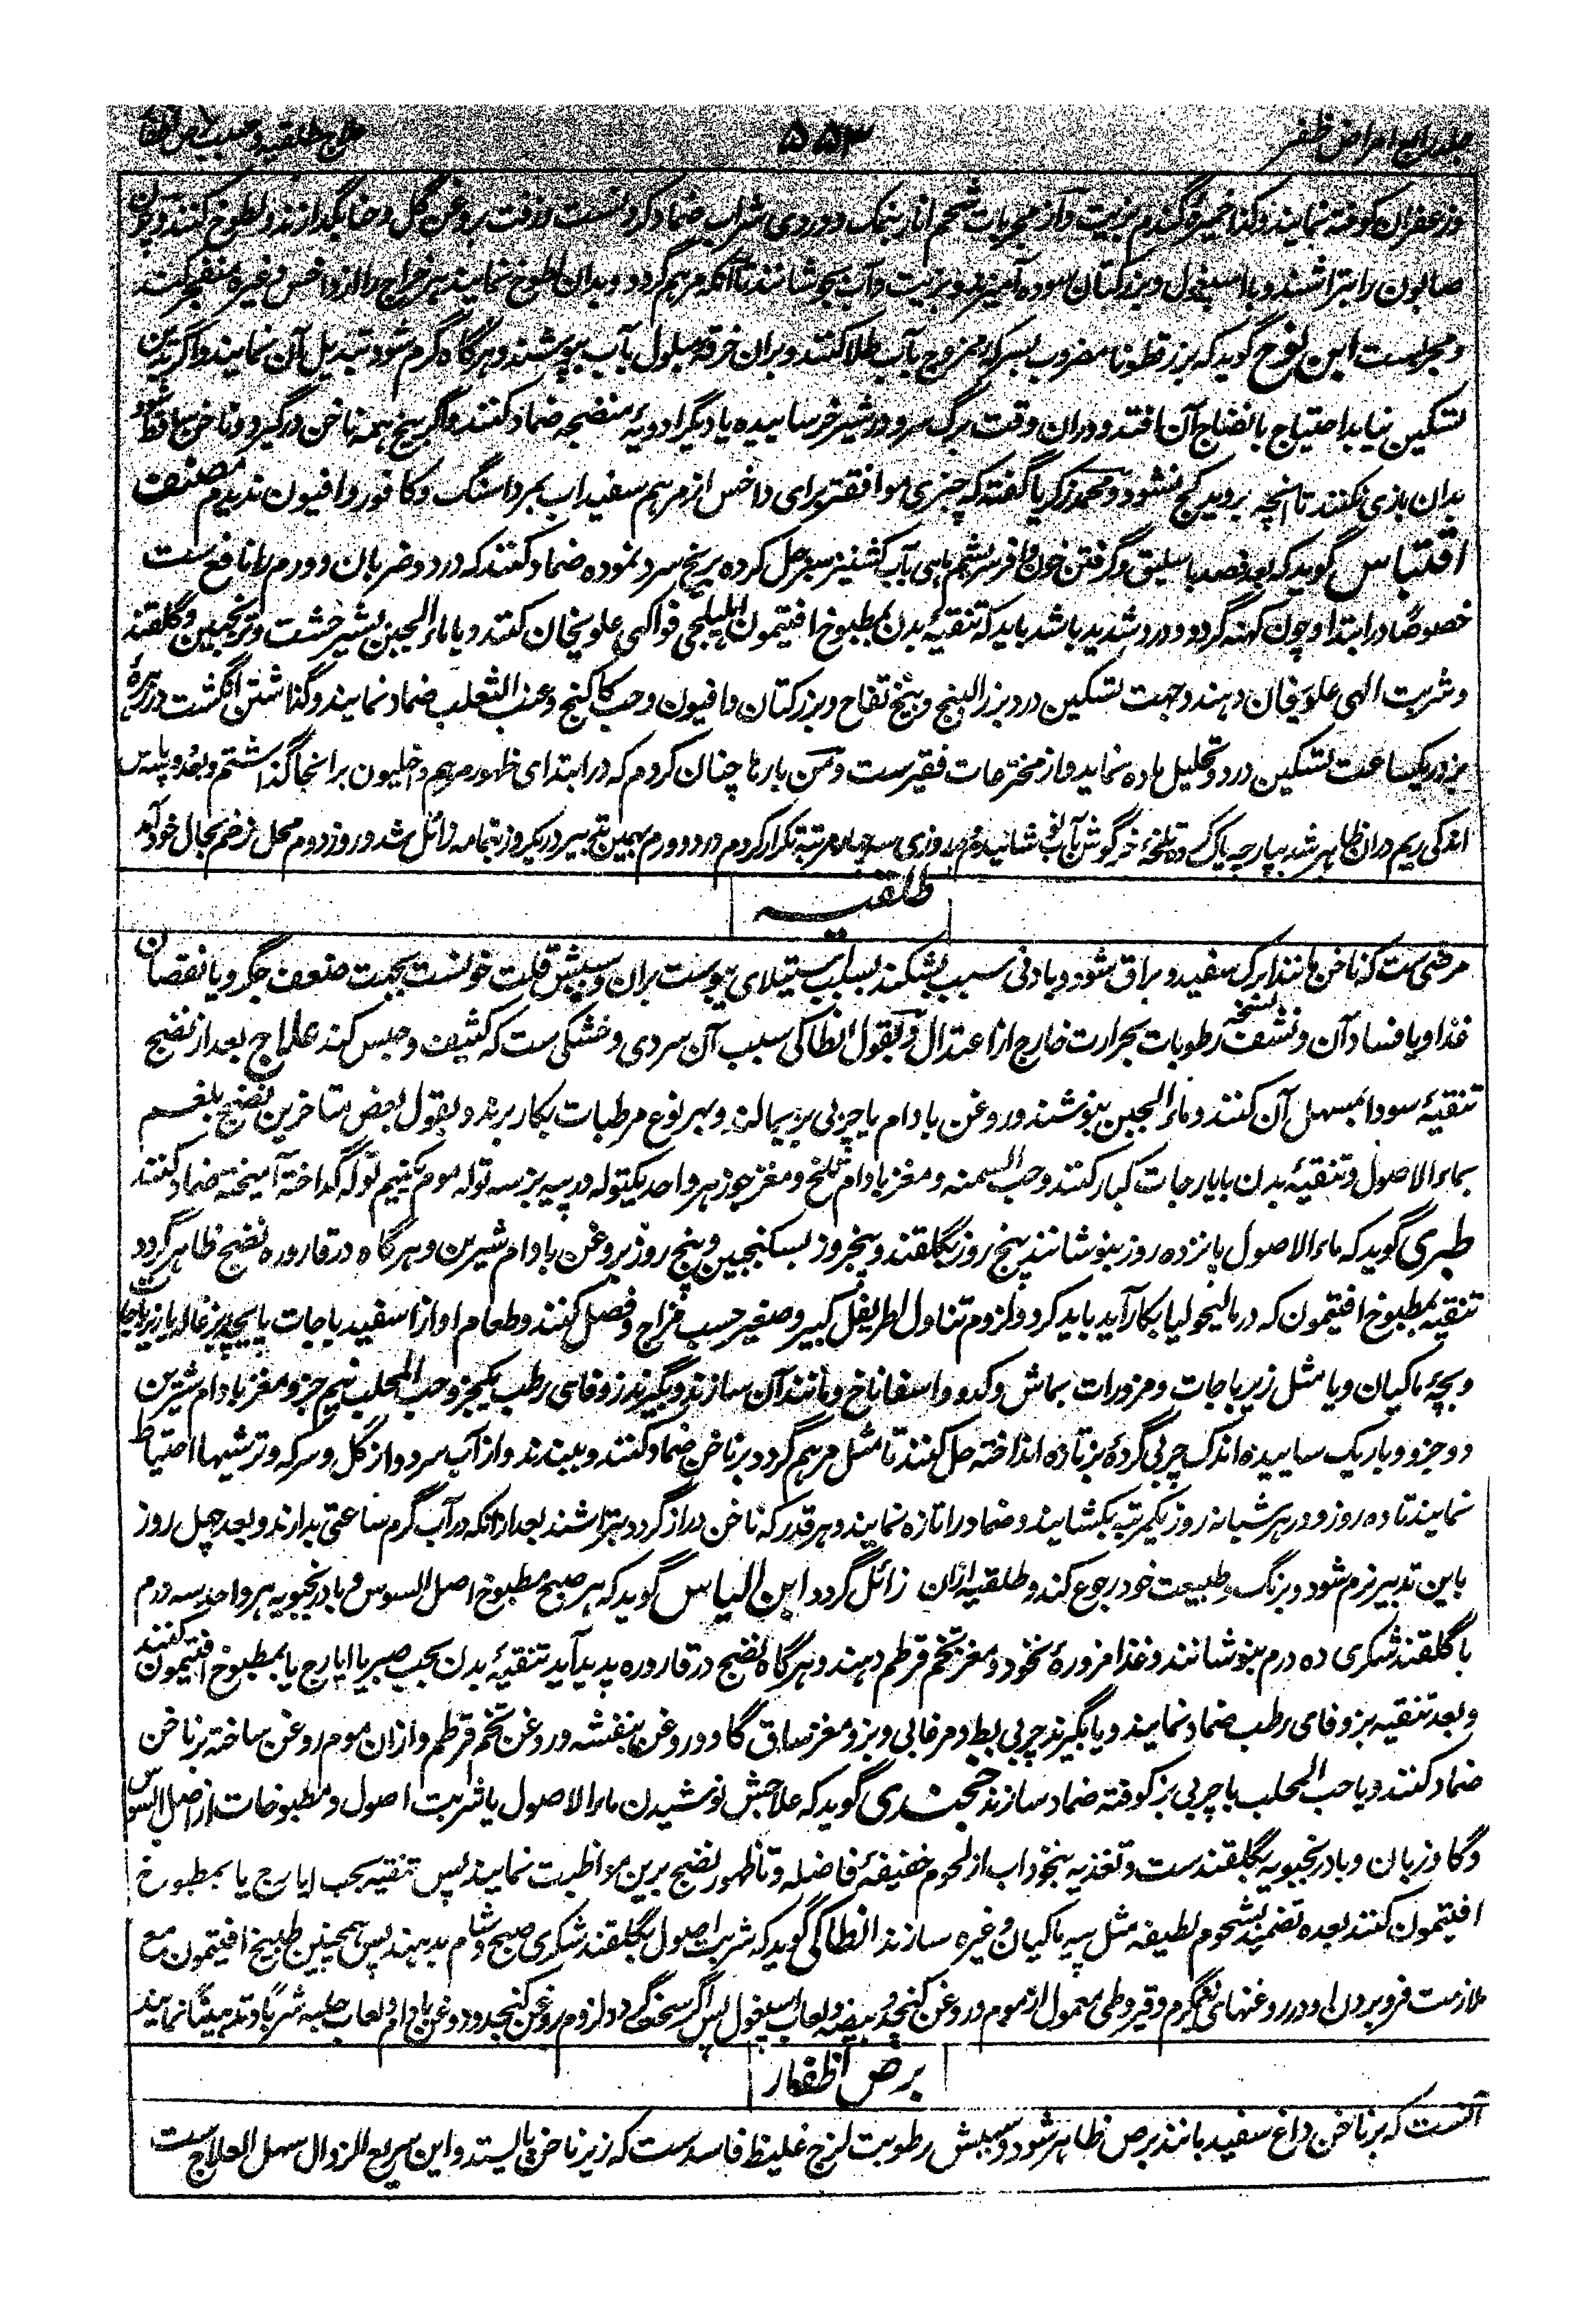 جلد رابع امراض ظفر
۵۵۳
علاج طلقیه و سبب برص اظفار
وزعفران کوفته نمایند و کذا خمیر گندم بزیت و از مجربات شحم انار بنمک و دردی شراب ضماد کردنست و زفت بروغن گل و حنا بگدازند و لطوخ کنند و چون
صابون را بتراشند و با اسپغول و بزرکتان سوده آمیزند و بزیت و آب بجوشانند تا آنکه مرهم گردد و بدان لطوخ نمایند هر خراج را از داخس و غیره منفجر کند
و مجربست ابن نوح گوید که بزرقطونا مضروب بسرکه ممزوج بآب طلا کنند و بران خرقه مبلول بآب بپوشند و هرگاه گرم شود تبدیل آن نمایند و اگر بدین
تسکین نیابد احتیاج بانضاج آن افتد و دران وقت برگ سرو در شیر خر ساییده یا دیگر ادویهٔ منضجه ضماد کنند و اگر بیخ همه ناخن درگیرد و ناخن ساقط شود
بدان بازی نکنند تا آنچه بروید کج نشود و محمد زکریا گفته که چیزی موافقتر برای داخس از مرهم سفیداب بمرداسنگ و کافور و افیون ندیدم مصنف
اقتباس گوید که بعد فصد باسلیق و گرفتن خون وافر سریشم ماهی بآب کشنیز سبز حل کرده بریخ سرد نموده ضماد کنند که درد و ضربان و ورم را نافع ست
خصوصًا در ابتدا و چون کهنه گردد و درد شدید باشد باید که تنقیهٔ بدن بمطبوخ افتیمون هلیلجی فواکهی علویخان کنند و یا ماء الجبن بشیر خشت و ترنجبین و گلقند
و شربت الهی علویخان دهند و جهت تسکین درد بزر البنج و بیخ تفاح و بزرکتان و افیون و حب کاکنج و عنب الثعلب ضماد نمایند و گذاشتن انگشت در زهرهٔ
بز در یکساعت تسکین درد و تحلیل ماده نماید و از مخترعات فقیرست و من بارها چنان کردم که در ابتدای ظهور مرهم داخلیون برانجا گذاشتم و بعد دو پاس
اندکی ریم دران ظاهر شد بپارچه پاک کرده تلخهٔ خرگوش بآن نوشانیدم روزی سه چهار مرتبه تکرار کردم درد و ورم بهمین تدبیر در یکروز بتمامه زائل شد و روز دوم محل زخم بحال خود آمد
طلقیه
مرضی ست که ناخن مانند ابرک سفید و براق شود و بادنی سبب بشکند بسبب استیلای یبوست بران و سببش قلت خونست بجهت ضعف جگر و یا نقصان
غذا و یا فساد آن و نشف رطوبات بحرارت خارج از اعتدال و بقول انطاکی سبب آن سردی و خشکی ست که کثیف و حبس کند علاج بعد از نضج
تنقیهٔ سودا بمسهل آن کنند و ماء الجبن بنوشند و روغن بادام یا چربی بز بمالند و بهر نوع مرطبات بکار برند و بقول بعض متاخرین نضج بلغم
بماء الاصول و تنقیهٔ بدن بایارجات کبار کنند و حب السمنه و مغز بادام تلخ و مغز جوز هر واحد یکتوله در پیه بز سه توله موم یکنیم توله گداخته آمیخته ضماد کنند
طبری گوید که ماء الاصول پانزده روز بنوشانند پنج روز بگلقند و پنجروز بسکنجبین و پنج روز بروغن بادام شیرین و هرگاه در قاروره نضج ظاهر گردد
تنقیه بمطبوخ افتیمون که در مالیخولیا بکار آید باید کرد و لزوم تناول اطریفل کبیر و صغیر حسب مزاج و فصل کنند و طعام او از اسفیدباجات پاچه بزغاله
و بچهٔ ماکیان و یا مثل زیرباجات و مزورات بماش و کدو و اسفاناخ و مانند آن سازند و بگیرند زوفای رطب یکجزو حب المحلب نیم جزو مغز بادام شیرین
دو جزو و باریک ساییده اندک چربی گردهٔ بز تازه انداخته حل کنند تا مثل مرهم گردد و بر ناخن ضماد کنند و ببندند و از آب سرد و از گل و سرکه و ترشیها احتیاط
نمایند تا ده روز و در هر شبانه روز یکمرتبه بکشایند و ضماد را تازه نمایند و هر قدر که ناخن دراز گردد بتراشند بعد ازانکه در آب گرم ساعتی بدارند و بعد چهل روز
باین تدبیر نرم شود و برنگ و طبیعت خود رجوع کند و طلقیه ازان زائل گردد ابن الیاس گوید که هر صبح مطبوخ اصل السوس و بادرنجبویه هر واحد سه درم
با گلقند شکری ده درم بنوشانند و غذا مزورهٔ نخود و مغز تخم قرطم دهند و هرگاه نضج در قاروره پدید آید تنقیهٔ بدن بحب صبر یا ایارج یا بمطبوخ افتیمون کنند
و بعد تنقیه بزوفای رطب ضماد نمایند و یا بگیرند چربی بط و مرغابی و بز و مغز ساق گاو و روغن بنفشه و روغن تخم قرطم و ازان موم روغن ساخته بر ناخن
ضماد کنند و یا حب المحلب با چربی بز کوفته ضماد سازند خجندی گوید که علاجش نوشیدن ماء الاصول یا شربت اصول و مطبوخات از اصل السوس
و گاوزبان و بادرنجبویه بگلقند ست و تغذیه بنخوداب از لحوم خفیفهٔ فاضله و تا ظهور نضج برین مواظبت نمایند پس تنقیه بحب ایارج یا بمطبوخ
افتیمون کنند بعده تضمید بشحوم لطیفه مثل پیه ماکیان و غیره سازند انطاکی گوید که شربت اصول بگلقند شکری صبح و شام بدهند پس همچنین طبیخ افتیمون مع
ملازمت فرو بردن او در روغنهای نیمگرم و قیروطی معمول از موم و روغن کنجد و بیضه و لعاب اسپغول پس اگر سخت گردد لزوم روغن کنجد و روغن بادام و لعاب حلبه شربًا و تدهینًا نمایند
برص اظفار
آنست که بر ناخن داغ سفید مانند برص ظاهر شود و سببش رطوبت لزج غلیظ فاسد ست که زیر ناخن بایستد و این سریع الزوال سهل العلاج ست